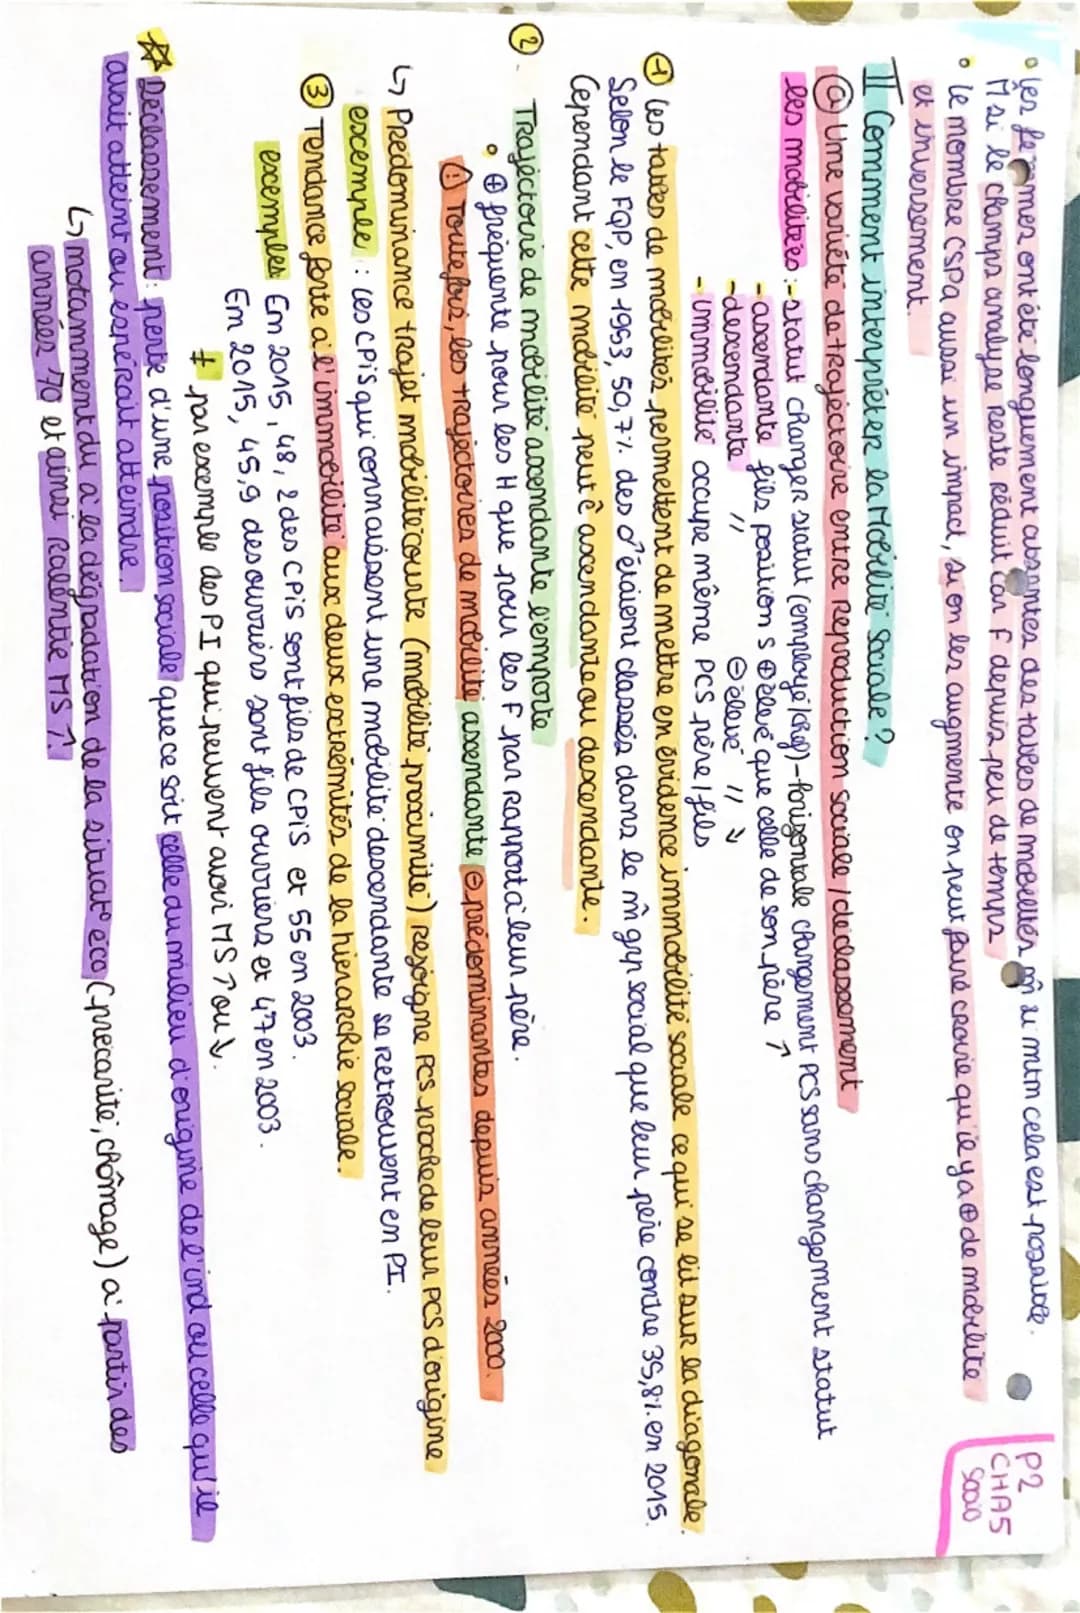 P2
CHA5
Socio
• Les femmes ont été longuement absentes des tables de mobilités m̂ si mtm cela est possible.
M si le champs analyse reste réduit car F depuis peu de temps
• Le nombre CSPA aussi un impact, si on les augmente on peut faire croire qu'il y a ⊕ de mobilité
et inversement.
II Comment interpréter la Mobilité Sociale ?
ⓐ Une variété de trajectoire entre Reproduction sociale / déclassement
les mobilités : - statut changer statut (employé/ ) - horizontale changement PCS sans changement statut
- ascendante fils position S ⊕ élevé que celle de son père ↗
- descendante // ⊖ élevé // ↘
- immobilité occupe même PCS père / fils
① Les tables de mobilités permettent de mettre en évidence immobilité sociale ce qui se lit sur la diagonale.
Selon le FQP, en 1993, 50,7% des ♂ étaient classés dans le m̂ grp social que leur père contre 35,8% en 2015.
Cependant cette mobilité peut ê ascendante ou descendante.
②. Trajectoire de mobilité ascendante l'emporte
• ⊕ fréquente pour les H que pour les F par rapport à leur père.
(!) Toutefois, les trajectoires de mobilité ascendante ⊖ prédominantes depuis années 2000.
↳ Prédominance trajet mobilité courte (mobilité proximité) rejoigne PCS proche de leur PCS d'origine
excemple : les CPIS qui connaissent une mobilité descendante se retrouvent en PI.
③ Tendance forte à l'immobilité aux deux extrémités de la hiérarchie sociale.
excemples En 2015, 48,2 des CPIS sont fils de CPIS et 55 en 2003.
En 2015, 45,9 des ouvriers sont fils ouvriers et 47 en 2003.
≠ par exemple des PI qui peuvent avoir MS ↗ ou ↘.
☆ Déclassement : perte d'une position sociale que ce soit celle du milieu d'origine de l'ind ou celle qu'il
avait atteint ou espérait atteindre.
↳ notamment du a la dégradation de la situat° éco (précarité, chômage) à partir des
années 70 et ainsi ralentie MS ↑.